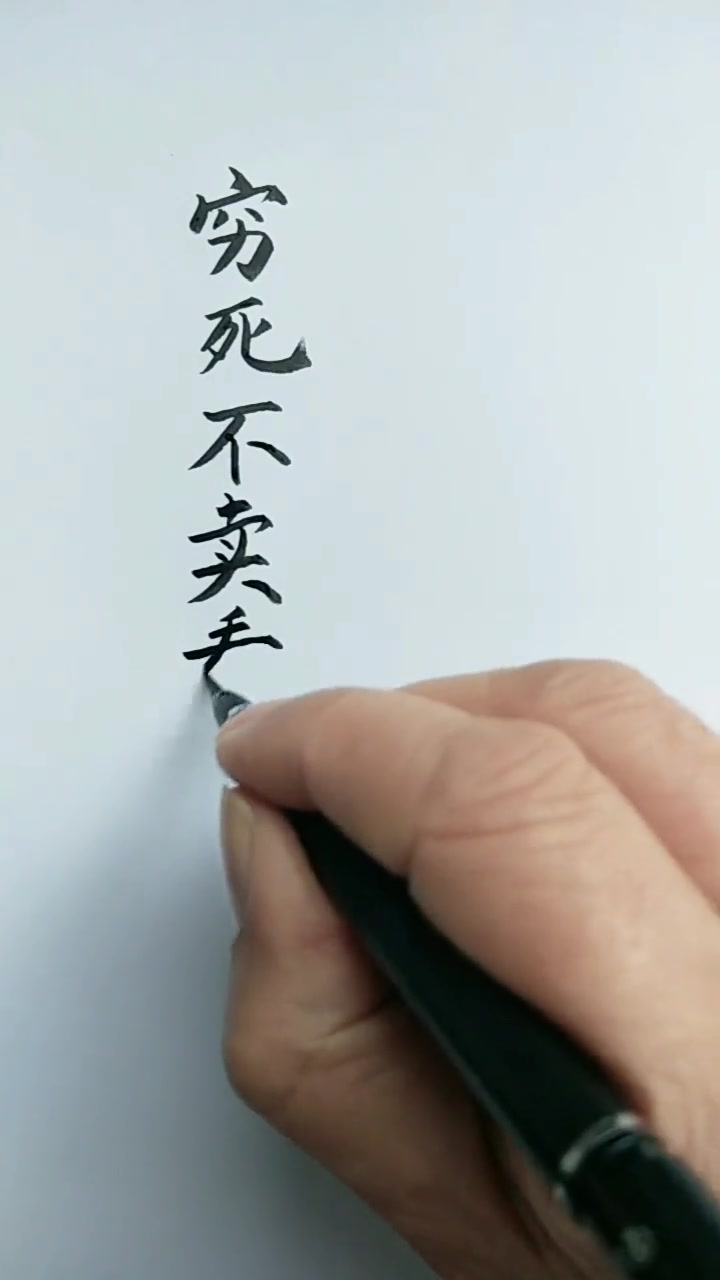 穷死不卖